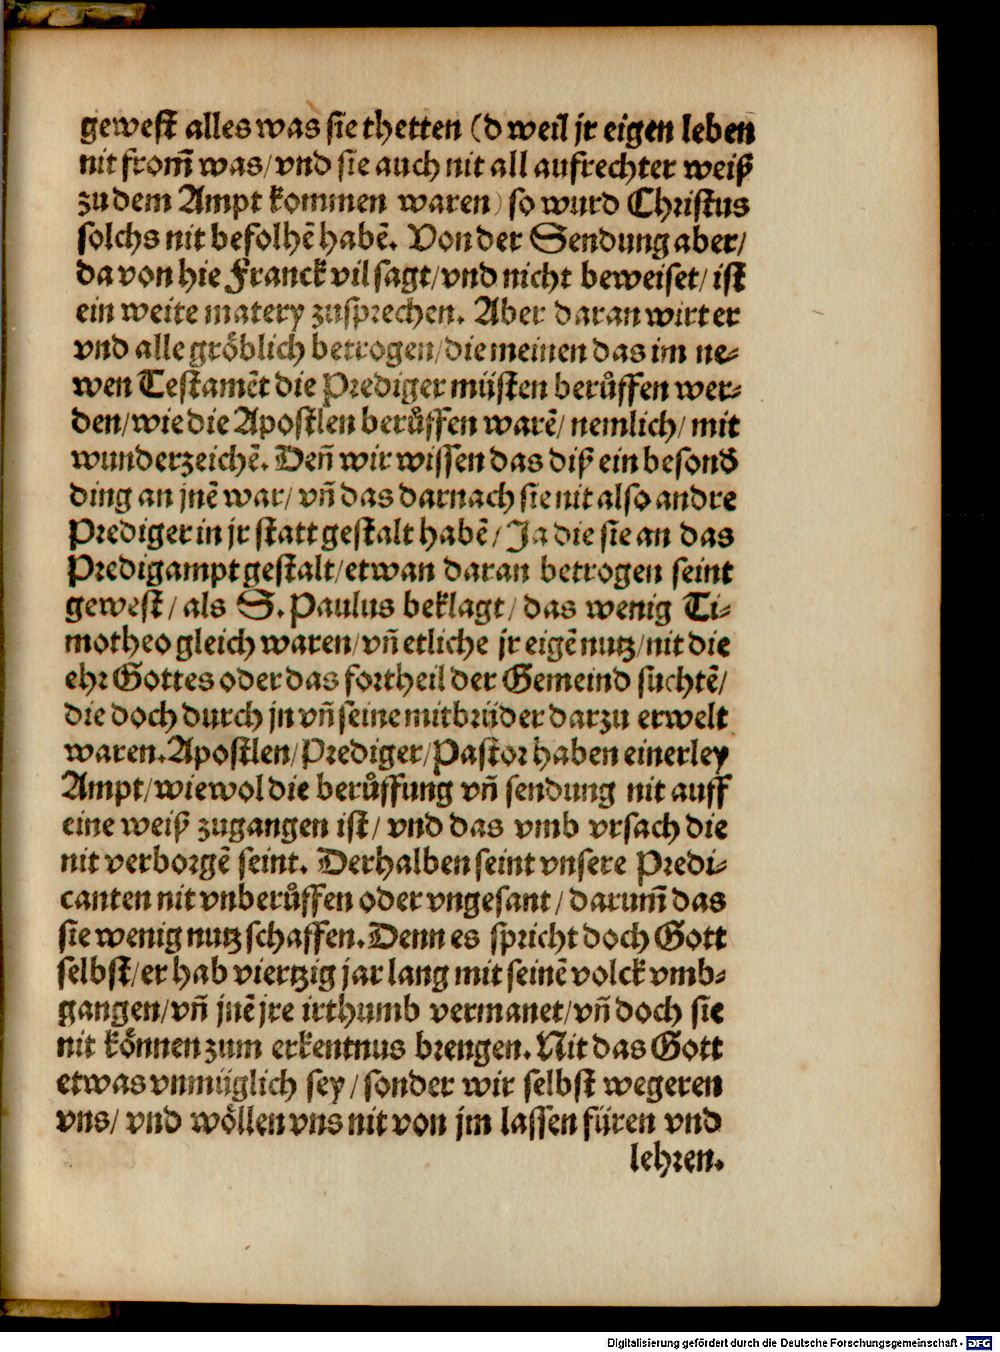 gewest alles was sie thetten (d weil jr eigen leben
nit from̃ was/ vnd sie auch nit all aufrechter weiß
zu dem Ampt kommen waren) so wurd Christus
solchs nit befolhẽ habẽ. Von der Sendung aber/
da von hie Franck vil sagt/ vnd nicht beweiset/ ist
ein weite matery zusprechen. Aber daran wirt er
vnd alle gröblich betrogen/ die meinen das im ne⸗
wen Testamẽt die Prediger müsten berůffen wer⸗
den/ wie die Apostlen berůffen warẽ/ nemlich/ mit
wunderzeichẽ. Deñ wir wissen das diß ein besond
ding an jnẽ war/ vñ das darnach sie nit also andre
Prediger in jr statt gestalt habẽ/ Ja die sie an das
Predigampt gestalt/ etwan daran betrogen seint
gewest/ als S. Paulus beklagt/ das wenig Ti⸗
motheo gleich waren/ vñ etliche jr eigẽ nutz/ nit die
ehr Gottes oder das fortheil der Gemeind suchtẽ/
die doch durch jn vñ seine mitbrüder darzu erwelt
waren. Apostlen/ Prediger/ Pastor haben einerley
Ampt/ wiewol die berůffung vñ sendung nit auff
eine weiß zugangen ist/ vnd das vmb vrsach die
nit verborgẽ seint. Derhalben seint vnsere Predi⸗
canten nit vnberůffen oder vngesant/ darum̃ das
sie wenig nutz schaffen. Denn es spricht doch Gott
selbst/ er hab viertzig jar lang mit seinẽ volck vmb⸗
gangen/ vñ jnẽ jre irthumb vermanet/ vñ doch sie
nit können zum erkentnus brengen. Nit das Gott
etwas vnmüglich sey/ sonder wir selbst wegeren
vns/ vnd wöllen vns nit von jm lassen füren vnd
lehren.
Digitalisierung gefördert durch die Deutsche Forschungsgemeinschaft - DFG